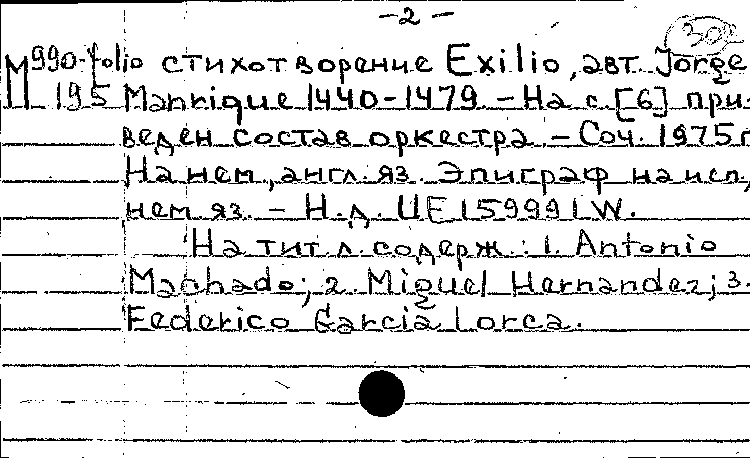 -2-
302
М990-folio стихотворение Exilio, авт. Jorge
II 195 Manrique 1440-1479. - На с. [6] при-
веден состав оркестра. - Соч. 1975г
На нем., англ. яз. Эпиграф на исп.,
нем яз. - Н.д. UE 15999 I W.
На тит. л. содерж.: 1. Antonio
Machado; 2. Miguel Hernandez; 3.
Federico Garcia Lorca.